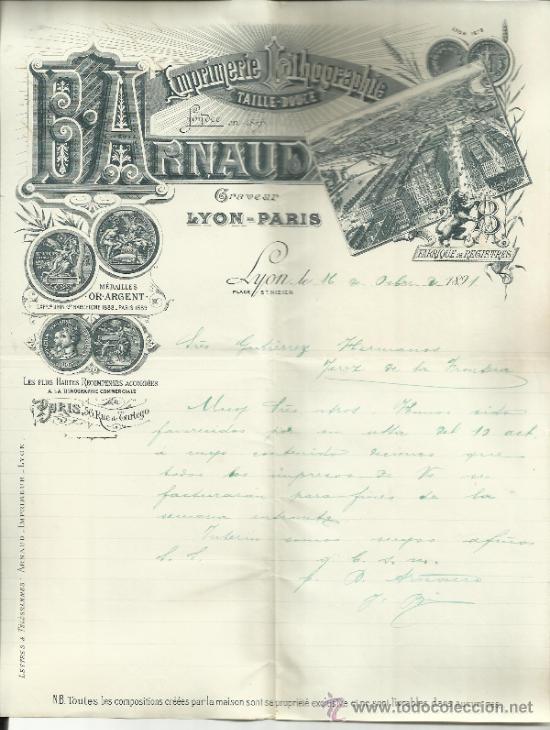 LYON 1872
Imprimerie Lithographie
TAILLE-DOUCE
Fondée en
B. ARNAUD
Graveur
LYON-PARIS
FABRIQUE DE REGISTRES
MÉDAILLES
OR-ARGENT
PARIS 1889
Lyon, le 16 de 1891
PLACE ST NIZIER
Sres Gutiérrez Hermanos
Jerez de la Frontera
LES PLUS HAUTES RÉCOMPENSES ACCORDÉES
A LA LITHOGRAPHIE COMMERCIALE
PARIS, 56, Rue de
Muy Sres ntros Hemos sido
favorecidos por su atta del 12 act
a cuyo contenido decimos que
todos los impresos de Vs se
facturarán para fines de la
semana entrante
Interin somos suyos afmos
S. S. q. b. s. m.
p. B. Arnaud
LETTRES & TÉLÉGRAMMES: ARNAUD-IMPRIMEUR-LYON
N.B. Toutes les compositions créées par la maison sont sa propriété exclusive et ne sont livrables dans aucun cas.
todocoleccion.net